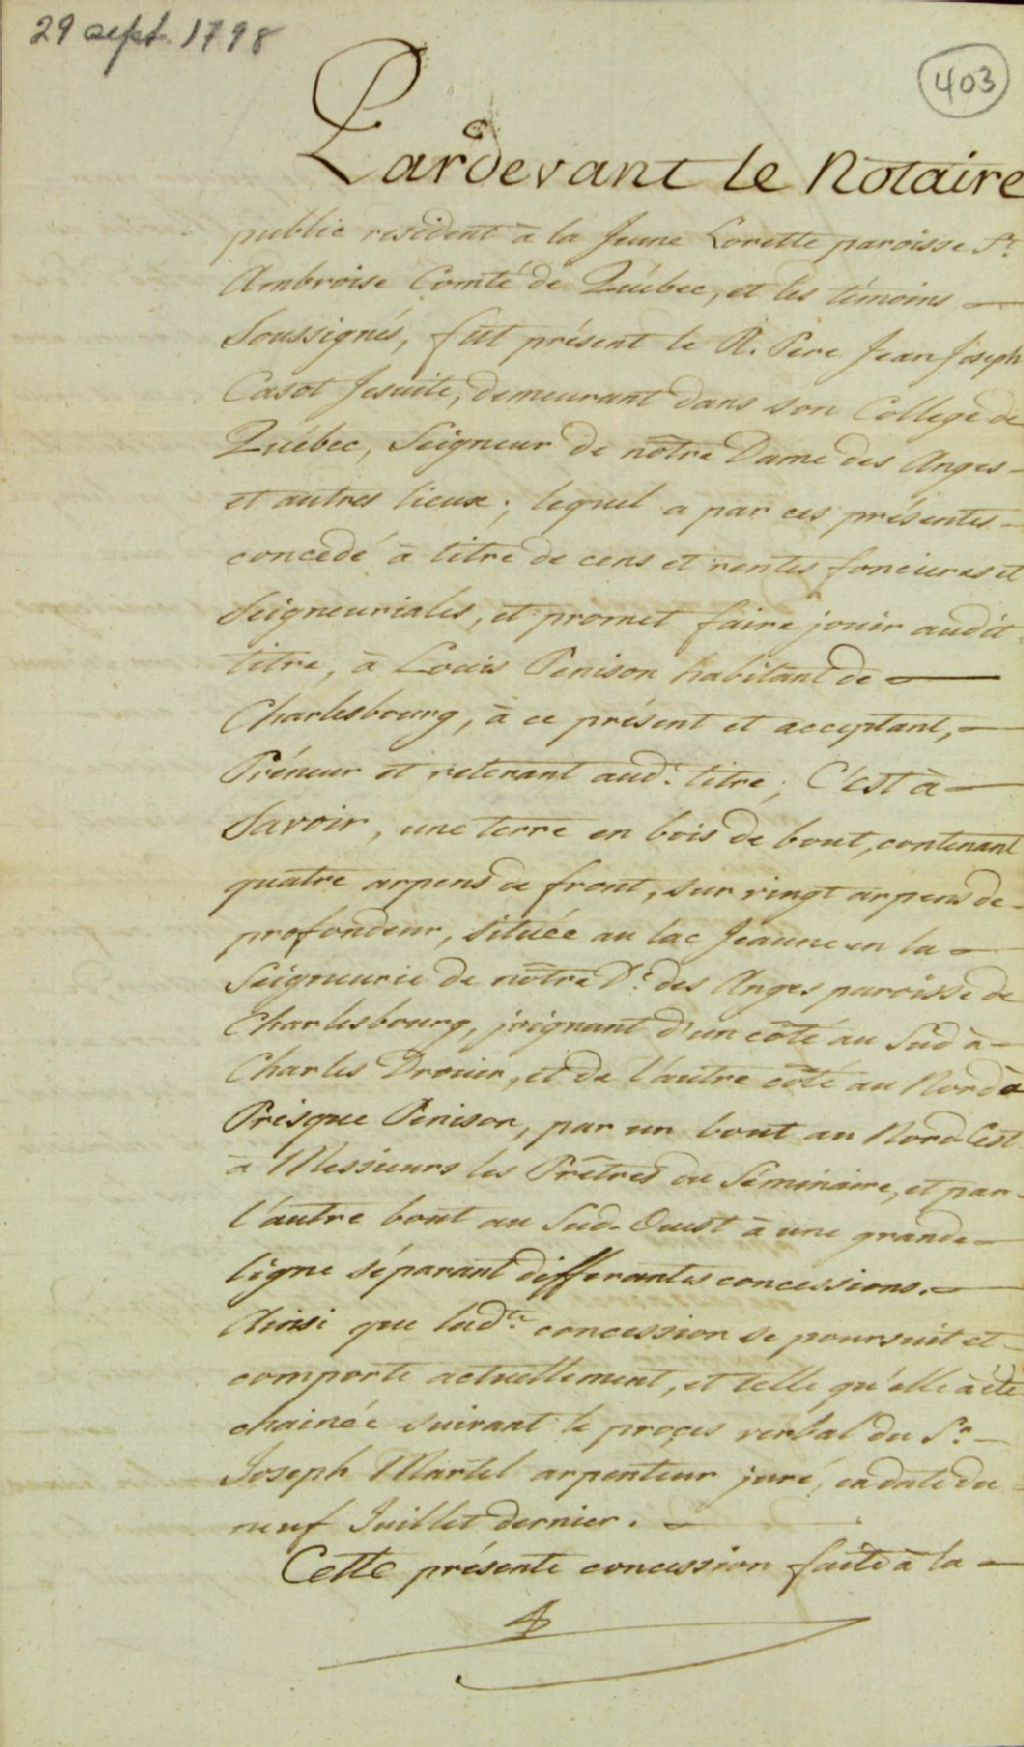 29 sept. 1798
403
Pardevant le Notaire
public resident à la Jeune Lorette paroisse St.
Ambroise Comté de Québec, et les témoins
Soussignés, fût présent le R. Pere Jean Joseph
Casot Jesuite, demeurant dans son College de
Québec, Seigneur de nôtre Dame des Anges
et autres lieux; lequel a par ces présentes
concedé à titre de cens et rentes foncieres et
Seigneuriales, et promet faire jouir audit
titre, à Louis Penison habitant de
Charlesbourg, à ce présent et acceptant,
Préneur et retenant aud.t titre; C'est à
Savoir, une terre en bois de bout, contenant
quatre arpens de front, sur vingt arpens de
profondeur, située au lac Jeaune en la
Seigneurie de nôtre De. des Anges paroisse de
Charlesbourg, joignant d'un côté au Sud à
Charles Drouin, et de l'autre côté au Nord à
Prisque Penison, par un bout au Nord Est
à Messieurs les Prêtres du Séminaire, et par
l'autre bout au Sud-Ouest à une grande
ligne séparant differentes concessions.
Ainsi que lad.te concession se poursuit et
comporte actuellement, et telle qu'elle à été
chainée suivant le proçes verbal du Sr.
Joseph Martel arpenteur juré, en date du
neuf Juillet dernier.
Cette présente concession faite à la